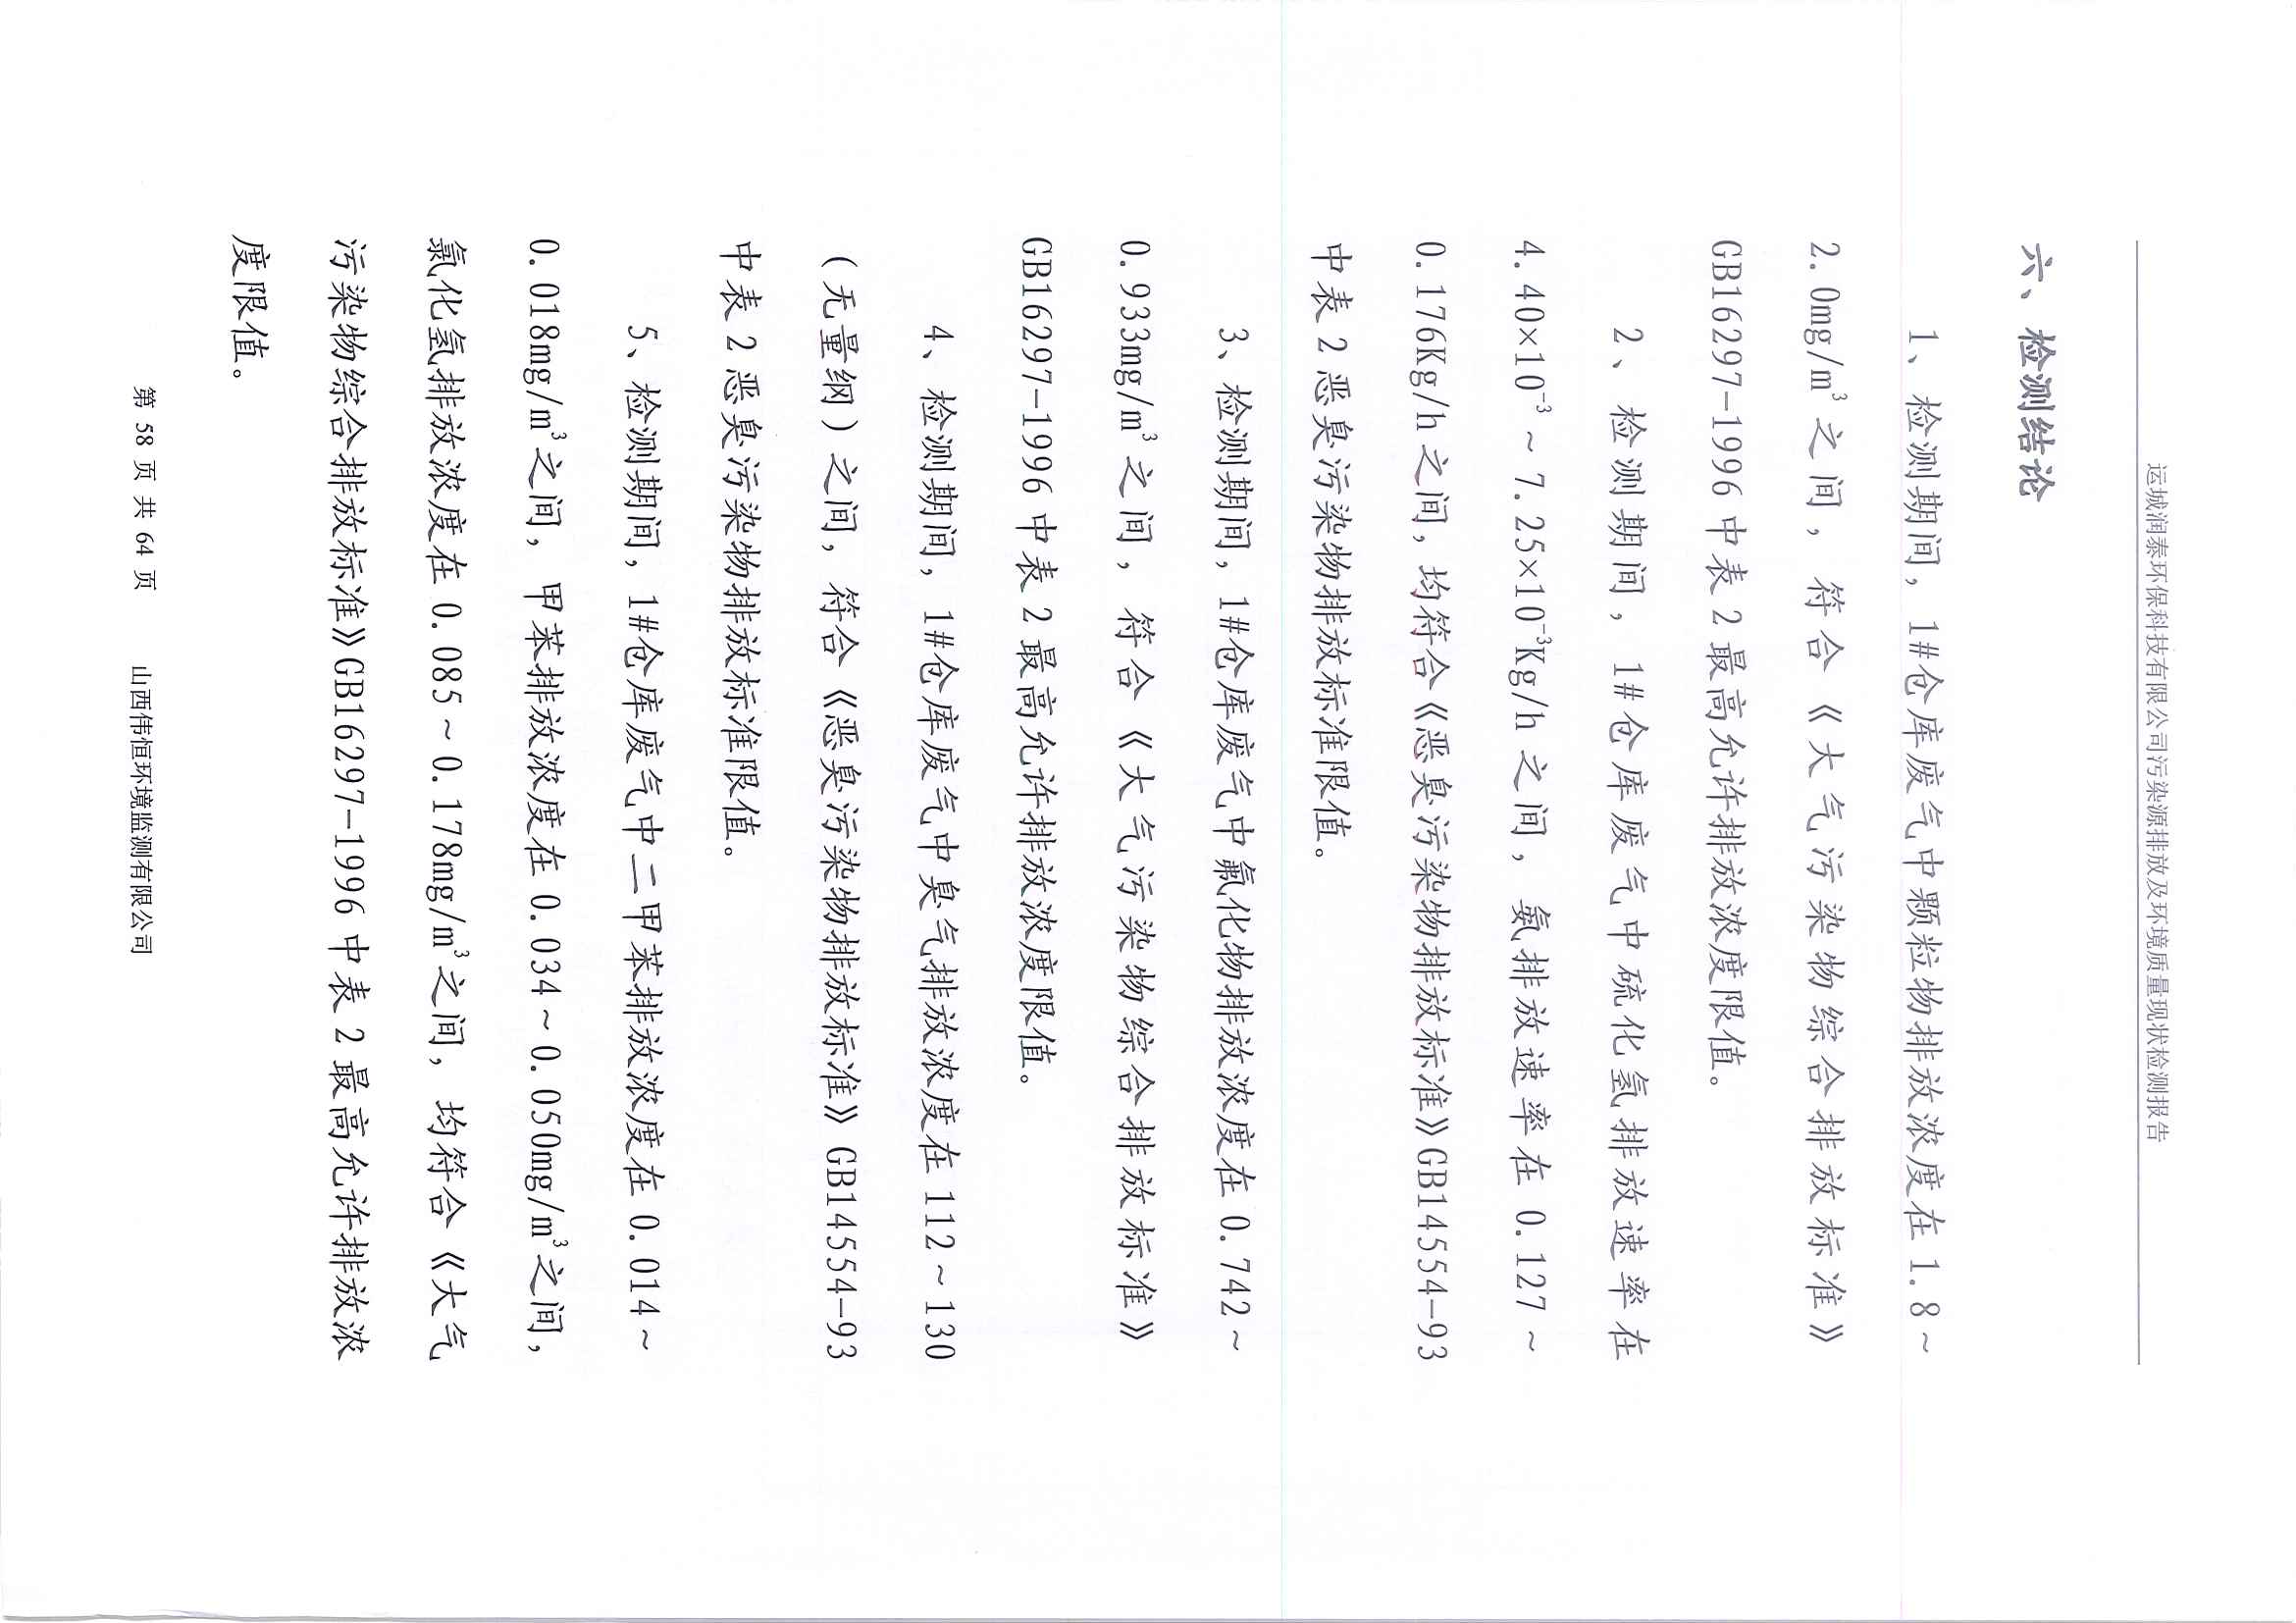 运城润泰环保科技有限公司污染源排放及环境质量现状检测报告
六、检测结论
1、检测期间，1#仓库废气中颗粒物排放浓度在 1.8～
2.0mg/m³之间，符合《大气污染物综合排放标准》
GB16297-1996 中表 2 最高允许排放浓度限值。
2、检测期间，1#仓库废气中硫化氢排放速率在
4.40×10⁻³～7.25×10⁻³Kg/h 之间，氨排放速率在 0.127～
0.176Kg/h 之间，均符合《恶臭污染物排放标准》GB14554-93
中表 2 恶臭污染物排放标准限值。
3、检测期间，1#仓库废气中氟化物排放浓度在 0.742～
0.933mg/m³之间，符合《大气污染物综合排放标准》
GB16297-1996 中表 2 最高允许排放浓度限值。
4、检测期间，1#仓库废气中臭气排放浓度在 112～130
（无量纲）之间，符合《恶臭污染物排放标准》GB14554-93
中表 2 恶臭污染物排放标准限值。
5、检测期间，1#仓库废气中二甲苯排放浓度在 0.014～
0.018mg/m³之间，甲苯排放浓度在 0.034～0.050mg/m³之间，
氯化氢排放浓度在 0.085～0.178mg/m³之间，均符合《大气
污染物综合排放标准》GB16297-1996 中表 2 最高允许排放浓
度限值。
第 58 页 共 64 页 山西伟恒环境监测有限公司